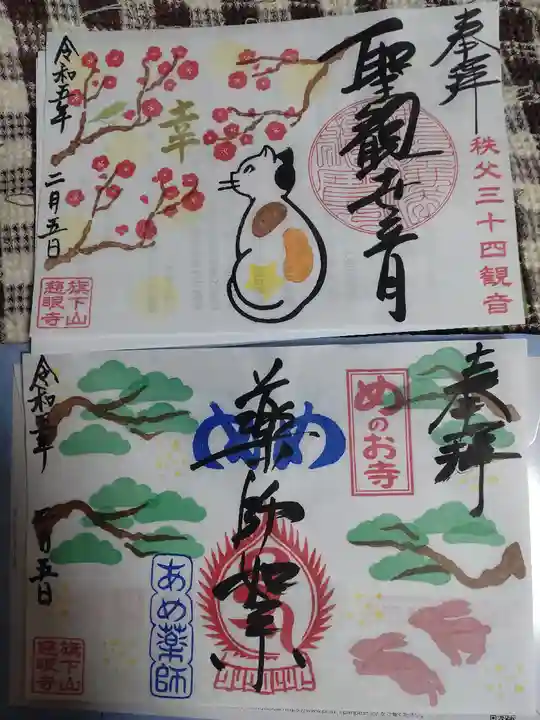 奉拝
秩父三十四観音
聖観世音
幸
令和五年
二月五日
旗下山
慈眼寺
奉拝
めのお寺
めめ
薬師如来
あめ薬師
令和五年
二月五日
旗下山
慈眼寺